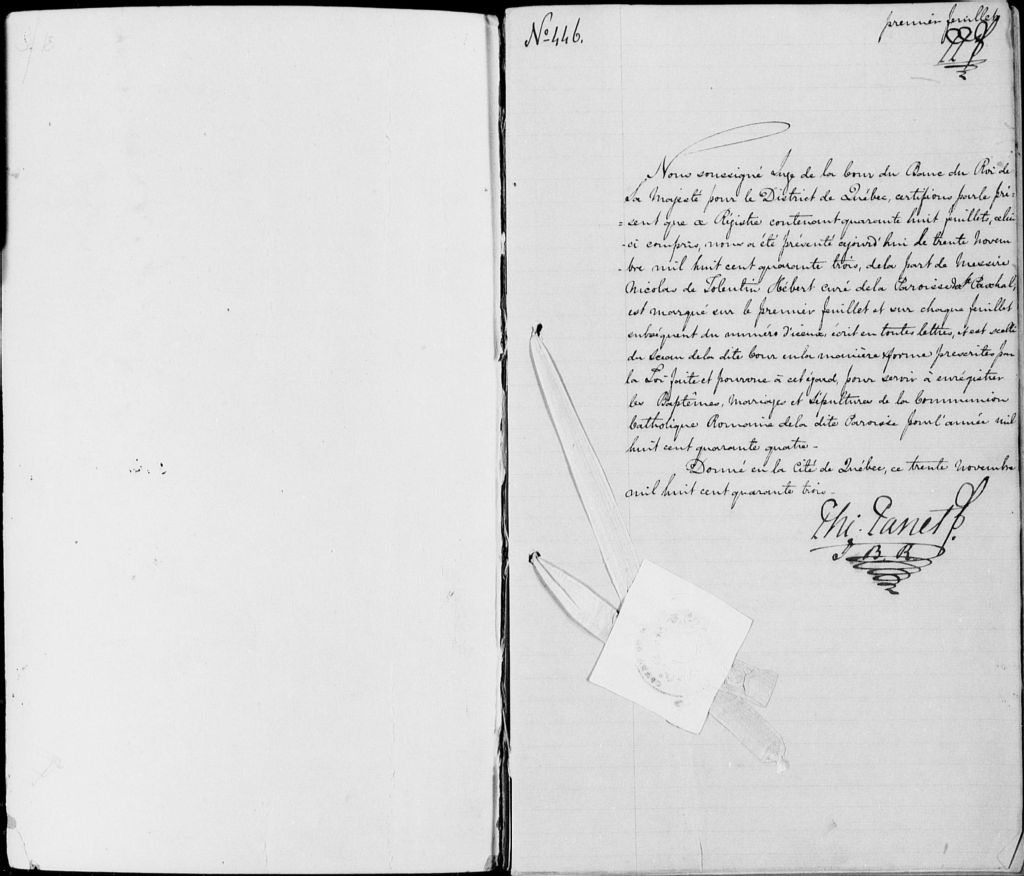 No 446.
premier feuillet
Nous soussigné Juge de la Cour du Banc du Roi de
Sa Majesté pour le District de Québec, certifions par le pré-
=sent que ce Régistre contenant quarante huit feuillets, celui
-ci compris, nous a été présenté aujourd'hui le trente Novem
-bre mil huit cent quarante trois, de la part de Messire
Nicolas de Tolentin Hébert curé de la Paroisse de St. Paschal,
est marqué sur le premier feuillet et sur chaque feuillet
subséquent du numéro d'iceux écrit en toutes lettres, et est scellé
du Sceau de la dite Cour en la manière & forme prescrites par
la Loi faite et pourvue à cet égard, pour servir à enrégistrer
les Baptêmes, Mariages et Sépultures de la Communion
Catholique Romaine de la dite Paroisse pour l'année mil
huit cent quarante quatre -
Donné en la Cité de Québec, ce trente Novembre
mil huit cent quarante trois -
Phi. Panet
J B R